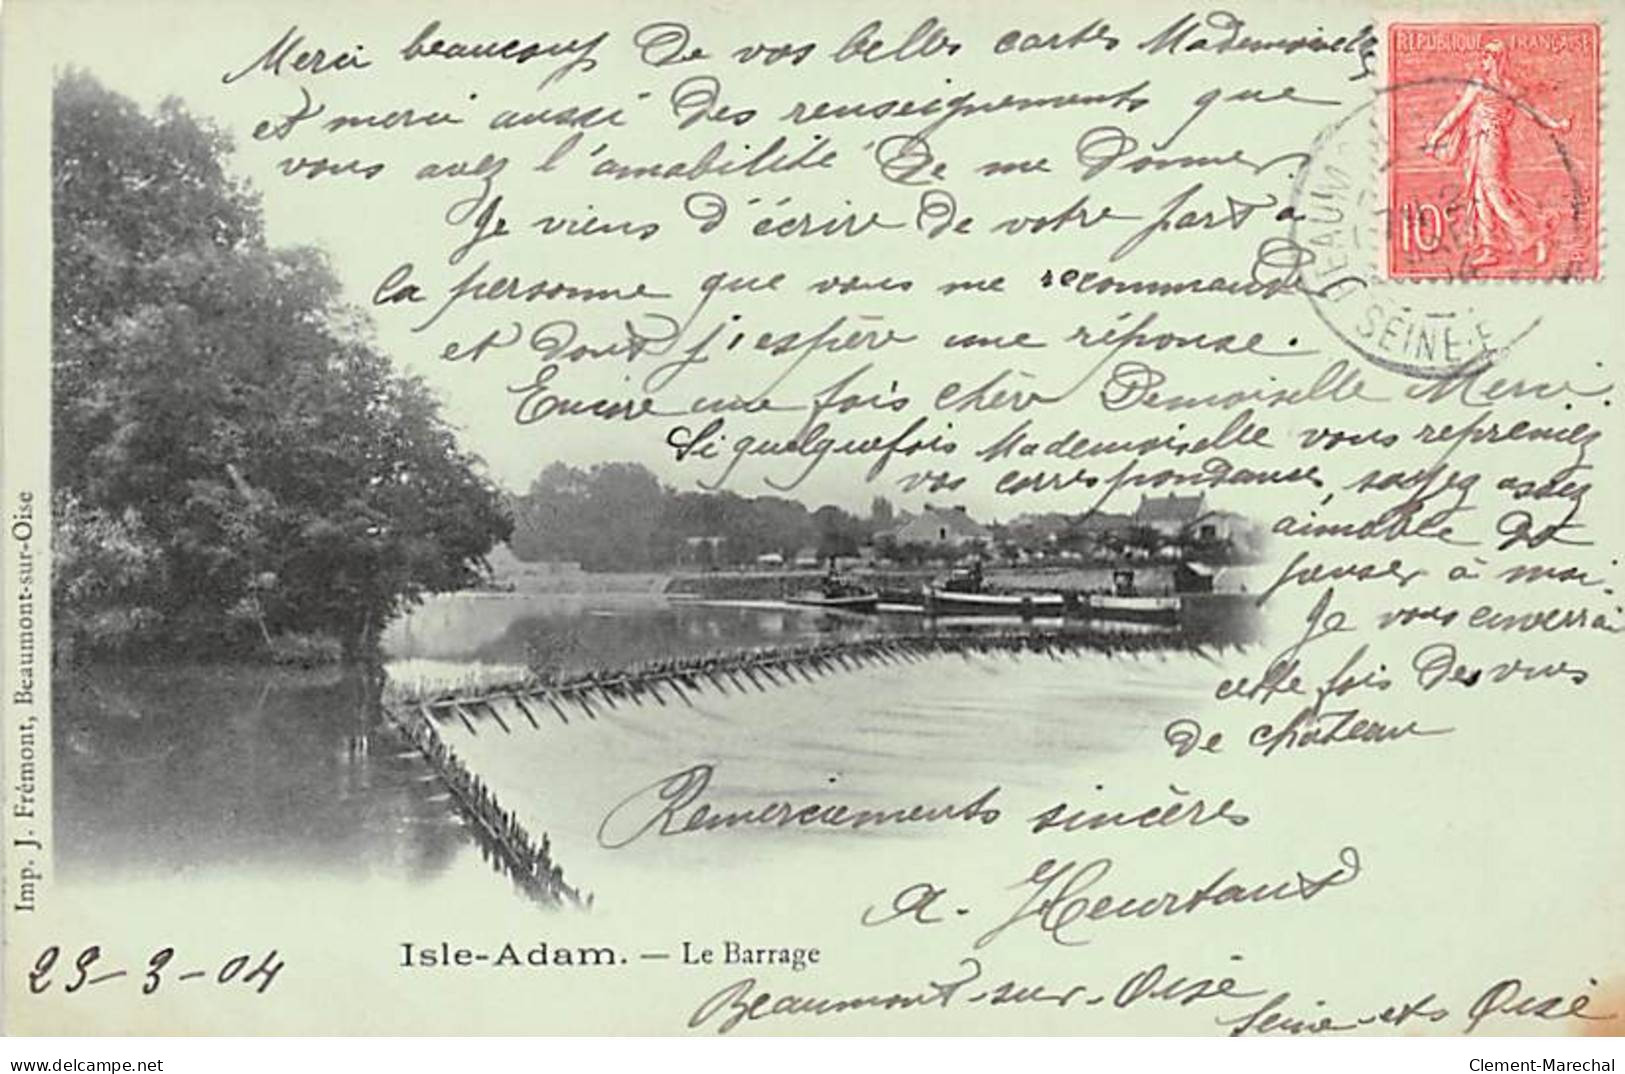 Merci beaucoup de vos belles cartes Mademoiselle
et merci aussi des renseignements que
vous avez l'amabilité de me donner.
Je viens d'écrire de votre part a
la personne que vous me recommandez
et dont j'espère une réponse.
Encore une fois chèr Demoiselle Merci.
Si quelquefois Mademoiselle vous repreniez
vos correspondances, soyez assez
aimable de
penser à moi.
Je vous enverrai
cette fois des vues
de château
Remerciements sincères
A. Heurtaux
Beaumont-sur-Oise
Seine-et-Oise
23-3-04
Isle-Adam. — Le Barrage
Imp. J. Frémont, Beaumont-sur-Oise
RÉPUBLIQUE FRANÇAISE
10
BEAUMO
SEINE-E
delcampe.net
Clement-Marechal